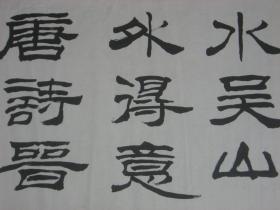 水吴山
外得意
唐詩晉